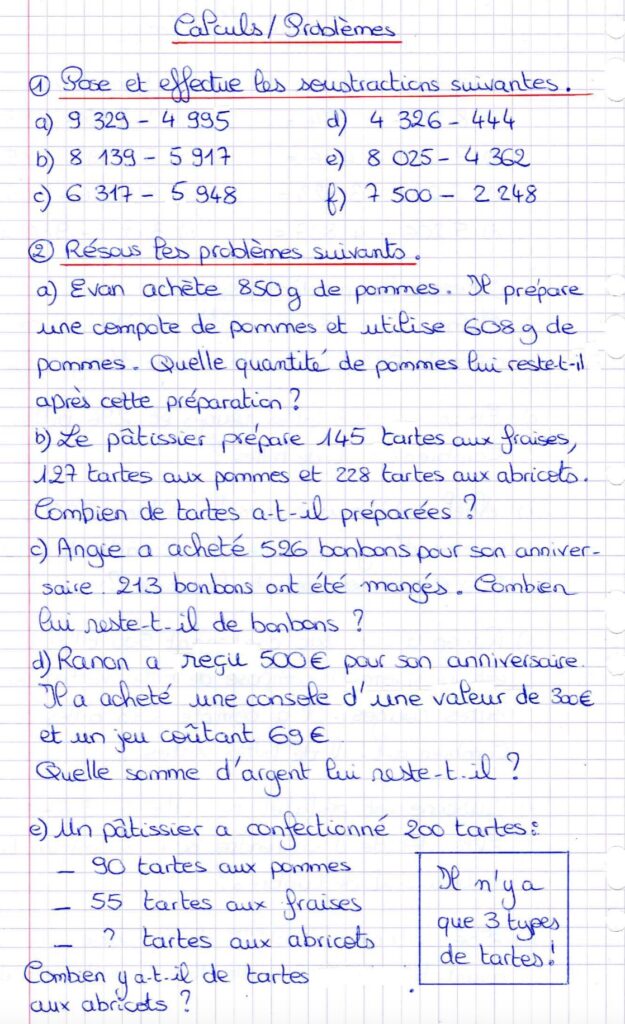 Calculs / Problèmes
① Pose et effectue les soustractions suivantes.
a) 9 329 - 4 995
d) 4 326 - 444
b) 8 139 - 5 917
e) 8 025 - 4 362
c) 6 317 - 5 948
f) 7 500 - 2 248
② Résous les problèmes suivants.
a) Evan achète 850 g de pommes. Il prépare
une compote de pommes et utilise 608 g de
pommes. Quelle quantité de pommes lui reste-t-il
après cette préparation ?
b) Le pâtissier prépare 145 tartes aux fraises,
127 tartes aux pommes et 228 tartes aux abricots.
Combien de tartes a-t-il préparées ?
c) Angie a acheté 526 bonbons pour son anniver-
saire. 213 bonbons ont été mangés. Combien
lui reste-t-il de bonbons ?
d) Ranon a reçu 500 € pour son anniversaire.
Il a acheté une console d'une valeur de 300€
et un jeu coûtant 69 €.
Quelle somme d'argent lui reste-t-il ?
e) Un pâtissier a confectionné 200 tartes :
- 90 tartes aux pommes
- 55 tartes aux fraises
- ? tartes aux abricots
Combien y a-t-il de tartes
aux abricots ?
Il n'y a
que 3 types
de tartes !